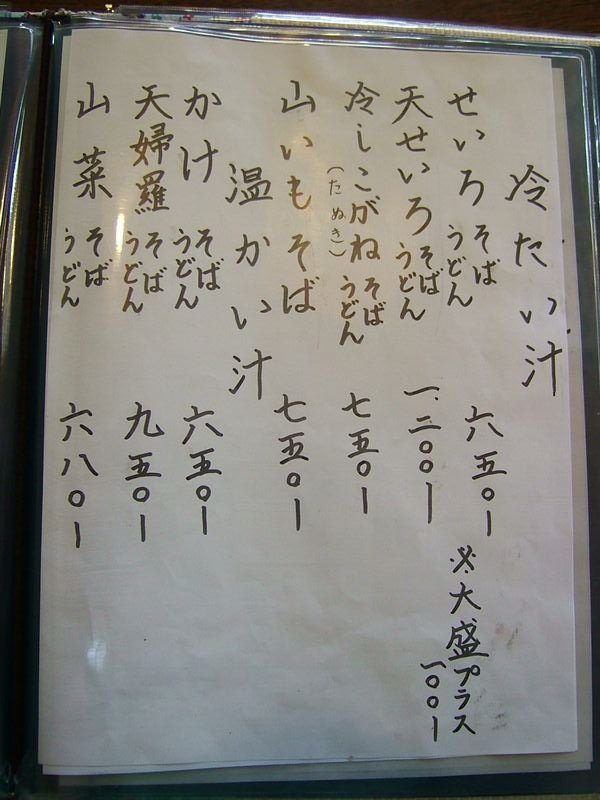 冷たい汁
せいろ そば うどん 六五〇ー
天せいろ そば うどん 一.二〇〇ー
冷しこがね (たぬき) そば うどん 七五〇ー
山いもそば 七五〇ー
温かい汁
かけ そば うどん 六五〇ー
天婦羅 そば うどん 九五〇ー
山菜 そば うどん 六八〇ー
※大盛プラス 一〇〇ー